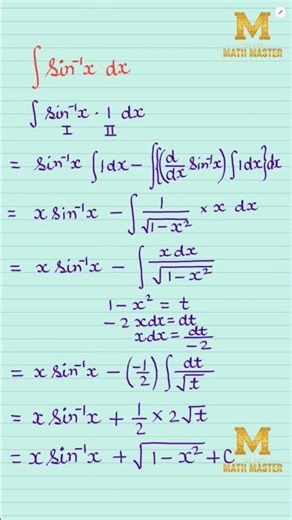 M
MATH MASTER
∫ sin⁻¹x dx
∫ sin⁻¹x · 1 dx
I II
= sin⁻¹x ∫1dx − ∫{(d/dx sin⁻¹x) ∫1dx}dx
= x sin⁻¹x − ∫ 1/√(1−x²) × x dx
= x sin⁻¹x − ∫ x dx/√(1−x²)
1−x² = t
−2xdx = dt
xdx = dt/−2
= x sin⁻¹x − (−1/2) ∫ dt/√t
= x sin⁻¹x + 1/2 × 2√t
= x sin⁻¹x + √(1−x²) + C
M
MATH MASTER